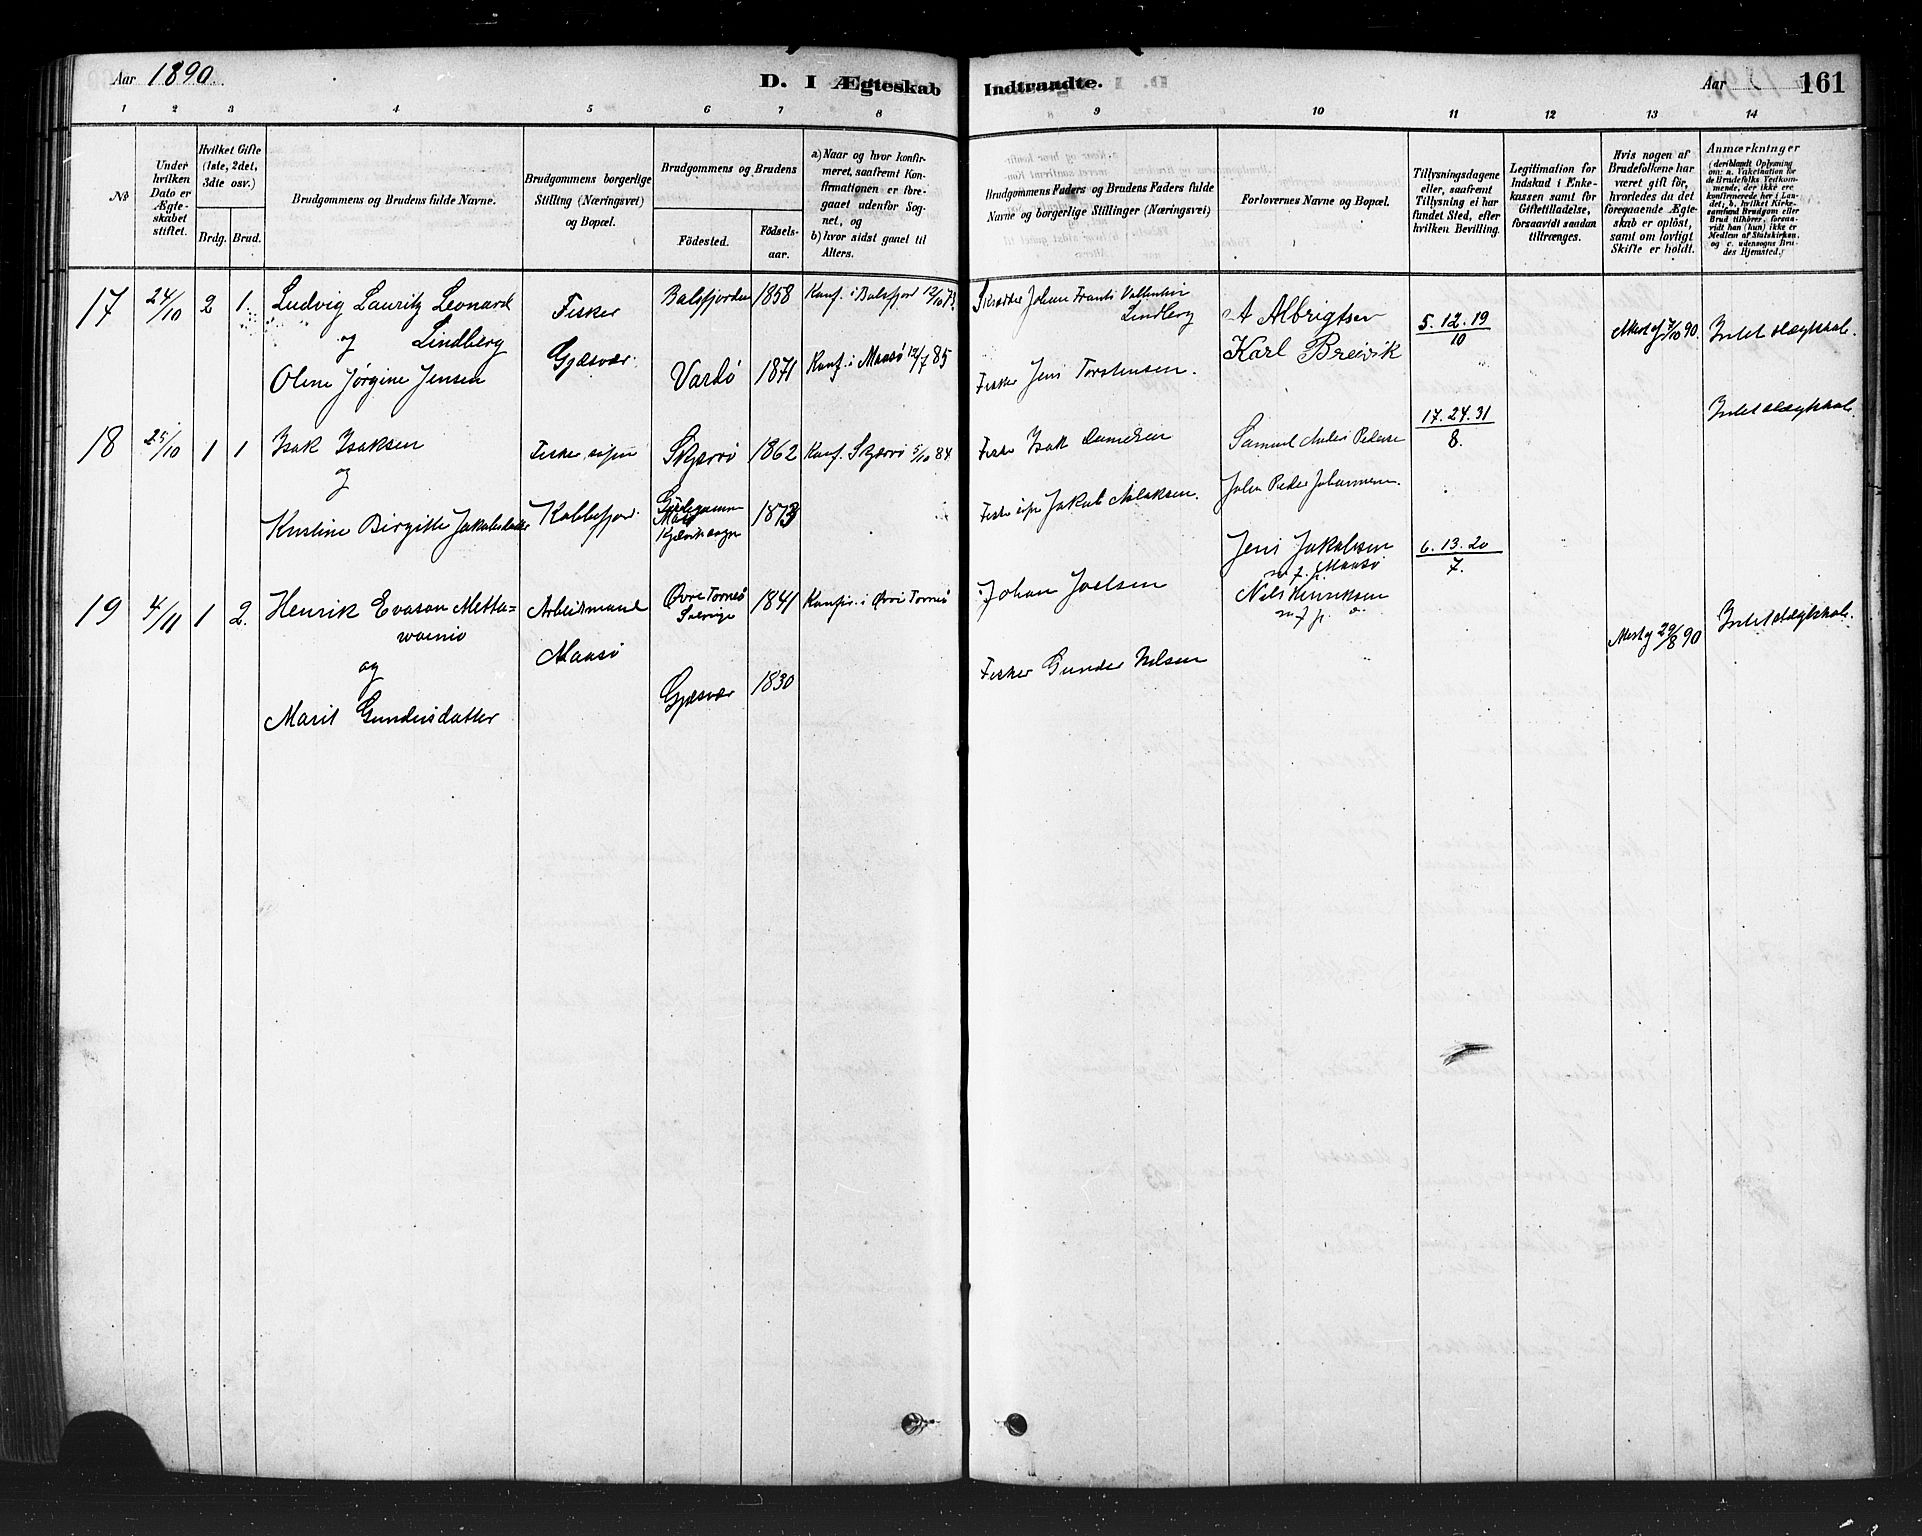 Aar 1890.
D. I Ægteskab Indtraadte.
Aar
161
1 2 3 4 5 6 7 8 9 10 11 12 13 14
No
Under hvilken Dato er Ægteskabet stiftet.
Hvilket Gifte (1ste, 2det, 3die osv.)
Brdg. Brud.
Brudgommens og Brudens fulde Navne.
Brudgommens borgerlige Stilling (Næringsvei) og Bopæl.
Brudgommens og Brudens
Födested.
Födselsaar.
a) Naar og hvor konfirmeret, saafremt Konfirmationen er foregaaet udenfor Sognet, og
b) hvor sidst gaaet til Alters.
Brudgommens Faders og Brudens Faders fulde Navne og borgerlige Stillinger (Næringsvei)
Forlovernes Navne og Bopæl.
Tillysningsdagene eller, saafremt Tillysning ei har fundet Sted, efter hvilken Bevilling.
Legitimation for Indskud i Enkekassen samt for Giftetilladelse, forsaavidt saadan tiltrænges.
Hvis nogen af Brudefolkene har været gift för, hvorledes da det foregaaende Ægteskab er oplöst, samt om lovligt Skifte er holdt.
Anmærkninger
(deriblandt Oplysning om: a. Vakcination for de Brudefolks Vedkommende, der ikke ere konfirmerede her i Landet; b. hvilket Kirkesamfund Brudgom eller Brud tilhörer, forsaavidt han (hun) ikke er Medlem af Statskirken, og c. udensogns Brudes Hjemsted.)
17 24/10 2 1. Ludvig Lauritz Leonard Lindberg
og
Oline Jørgine Jensen
Fisker
Gjæsvær.
Balsfjorden 1858 Konf. i Balsfjord 12/10 73
Vardö 1871 Konf. i Maasö 12/7 85
Johan Frants Vallentin Lindberg
Fisker Jens Torstensen.
A Albrigtsen
Karl Breivik
5. 12. 19
10
7/10 90
Intet slægtskab.
18 25/10 1 1 Isak Isaksen
og
Kristine Birgitte Jakobsdatter
Fisker
Kobbefjord.
Skjervö 1862 Konf. Skjervö 5/10 84
1873
Fisker Isak Danielsen
Fisker Jakob
Samuel Anders Peders
John Peder Johannesen.
17. 24. 31
8.
Intet slægtskab.
19 4/11 1 2. Henrik Evason Mettawainio
og
Marit Gundersdatter
Arbeidsmand
Maasö
Övre Torneö Sverige 1841 Konfir. i Övre Torneö
Gjæsvær 1830
Johan Joelsen
Fisker Gunder Nilsen
Jens Jakobsen
Maasö
Nils Henriksen
6. 13. 20
7.
29/8 90
Intet slægtskab.